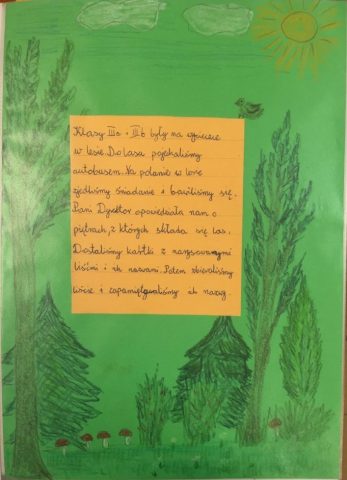 Klasy IIIa i IIIb były na wycieczce
w lesie. Do lasu pojechaliśmy
autobusem. Na polanie w lesie
zjedliśmy śniadanie i bawiliśmy się.
Pani Dyrektor opowiedziała nam o
piętrach, z których składa się las.
Dostaliśmy kartki z narysowanymi
liśćmi i ich nazwami. Potem zbieraliśmy
liście i zapamiętywaliśmy ich nazwy.